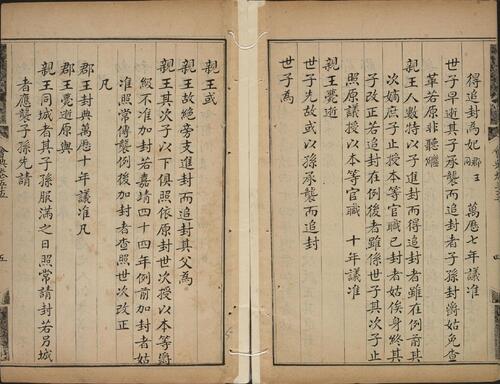 得追封為妃郡王同 萬曆七年議准
世子早逝其子承襲而追封者子孫封爵姑免查
革若原非聽繼
親王人數特以子進封而得追封者雖在例前其
次嫡庶子止授本等官職已封者姑俟身終其
子改正若追封在例後者雖係世子其次子止
照原議授以本等官職 十年議准
親王薨逝
世子先故或以孫承襲而追封
世子為
親王或
親王故絕旁支進封而追封其父為
親王其次子以下俱照依原封世次授以本等爵
級不准加封若嘉靖四十四年例前加封者姑
准照常傳襲例後加封者查照世次改正
凡
郡王封典萬曆十年議准凡
郡王薨逝原與
親王同城者其子孫服滿之日照常請封若另城
者應襲子孫先請
五